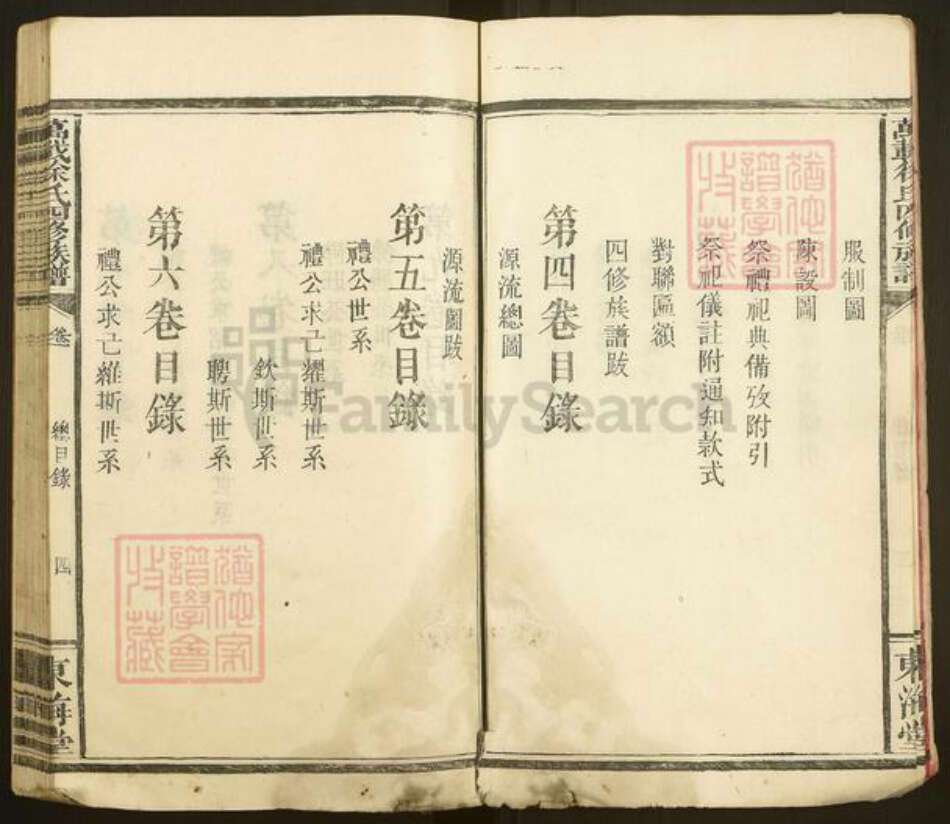 萬載徐氏四修族譜
東海堂
服制圖
陳設圖
祭禮祀典備攷附引
祭祀儀註附通知款式
對聯匾額
四修族譜跋
第四卷目錄
源流總圖
源流圖跋
第五卷目錄
禮公世系
禮公求己耀斯世系
欽斯世系
聘斯世系
第六卷目錄
禮公求己維斯世系
萬載徐氏四修族譜
卷
總目錄
四
東海堂
猶他家譜學會收藏
猶他家譜學會收藏
FamilySearch